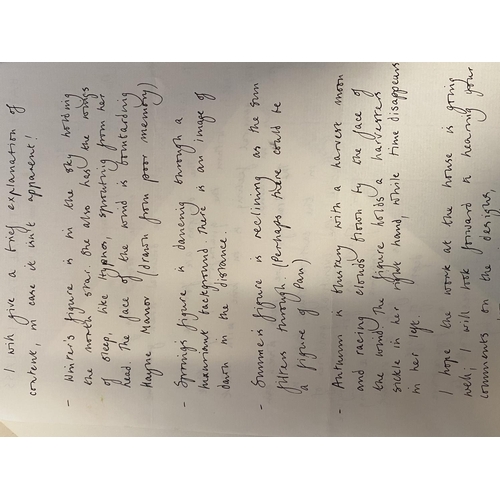 I will give a brief explanation of
content, in case it isn't apparent!
- Winter's figure is in the sky holding
the north star. She also has the wings
of sleep, like Hypnos, sprouting from her
head. The face of the wind is bombarding
Hayne Manor (drawn from poor memory)
- Spring's figure is dancing through a
luxuriant background there is an image of
dawn in the distance.
- Summer's figure is reclining as the sun
filters through. (Perhaps there could be
a figure of Pan)
- Autumn is blustery with a harvest moon
and racing clouds blown by the face of
the wind. The figure holds a harvesters
sickle in her right hand, while time disappears
in her left.
I hope the work at the house is going
well; I will look forward to hearing your
comments on the designs,